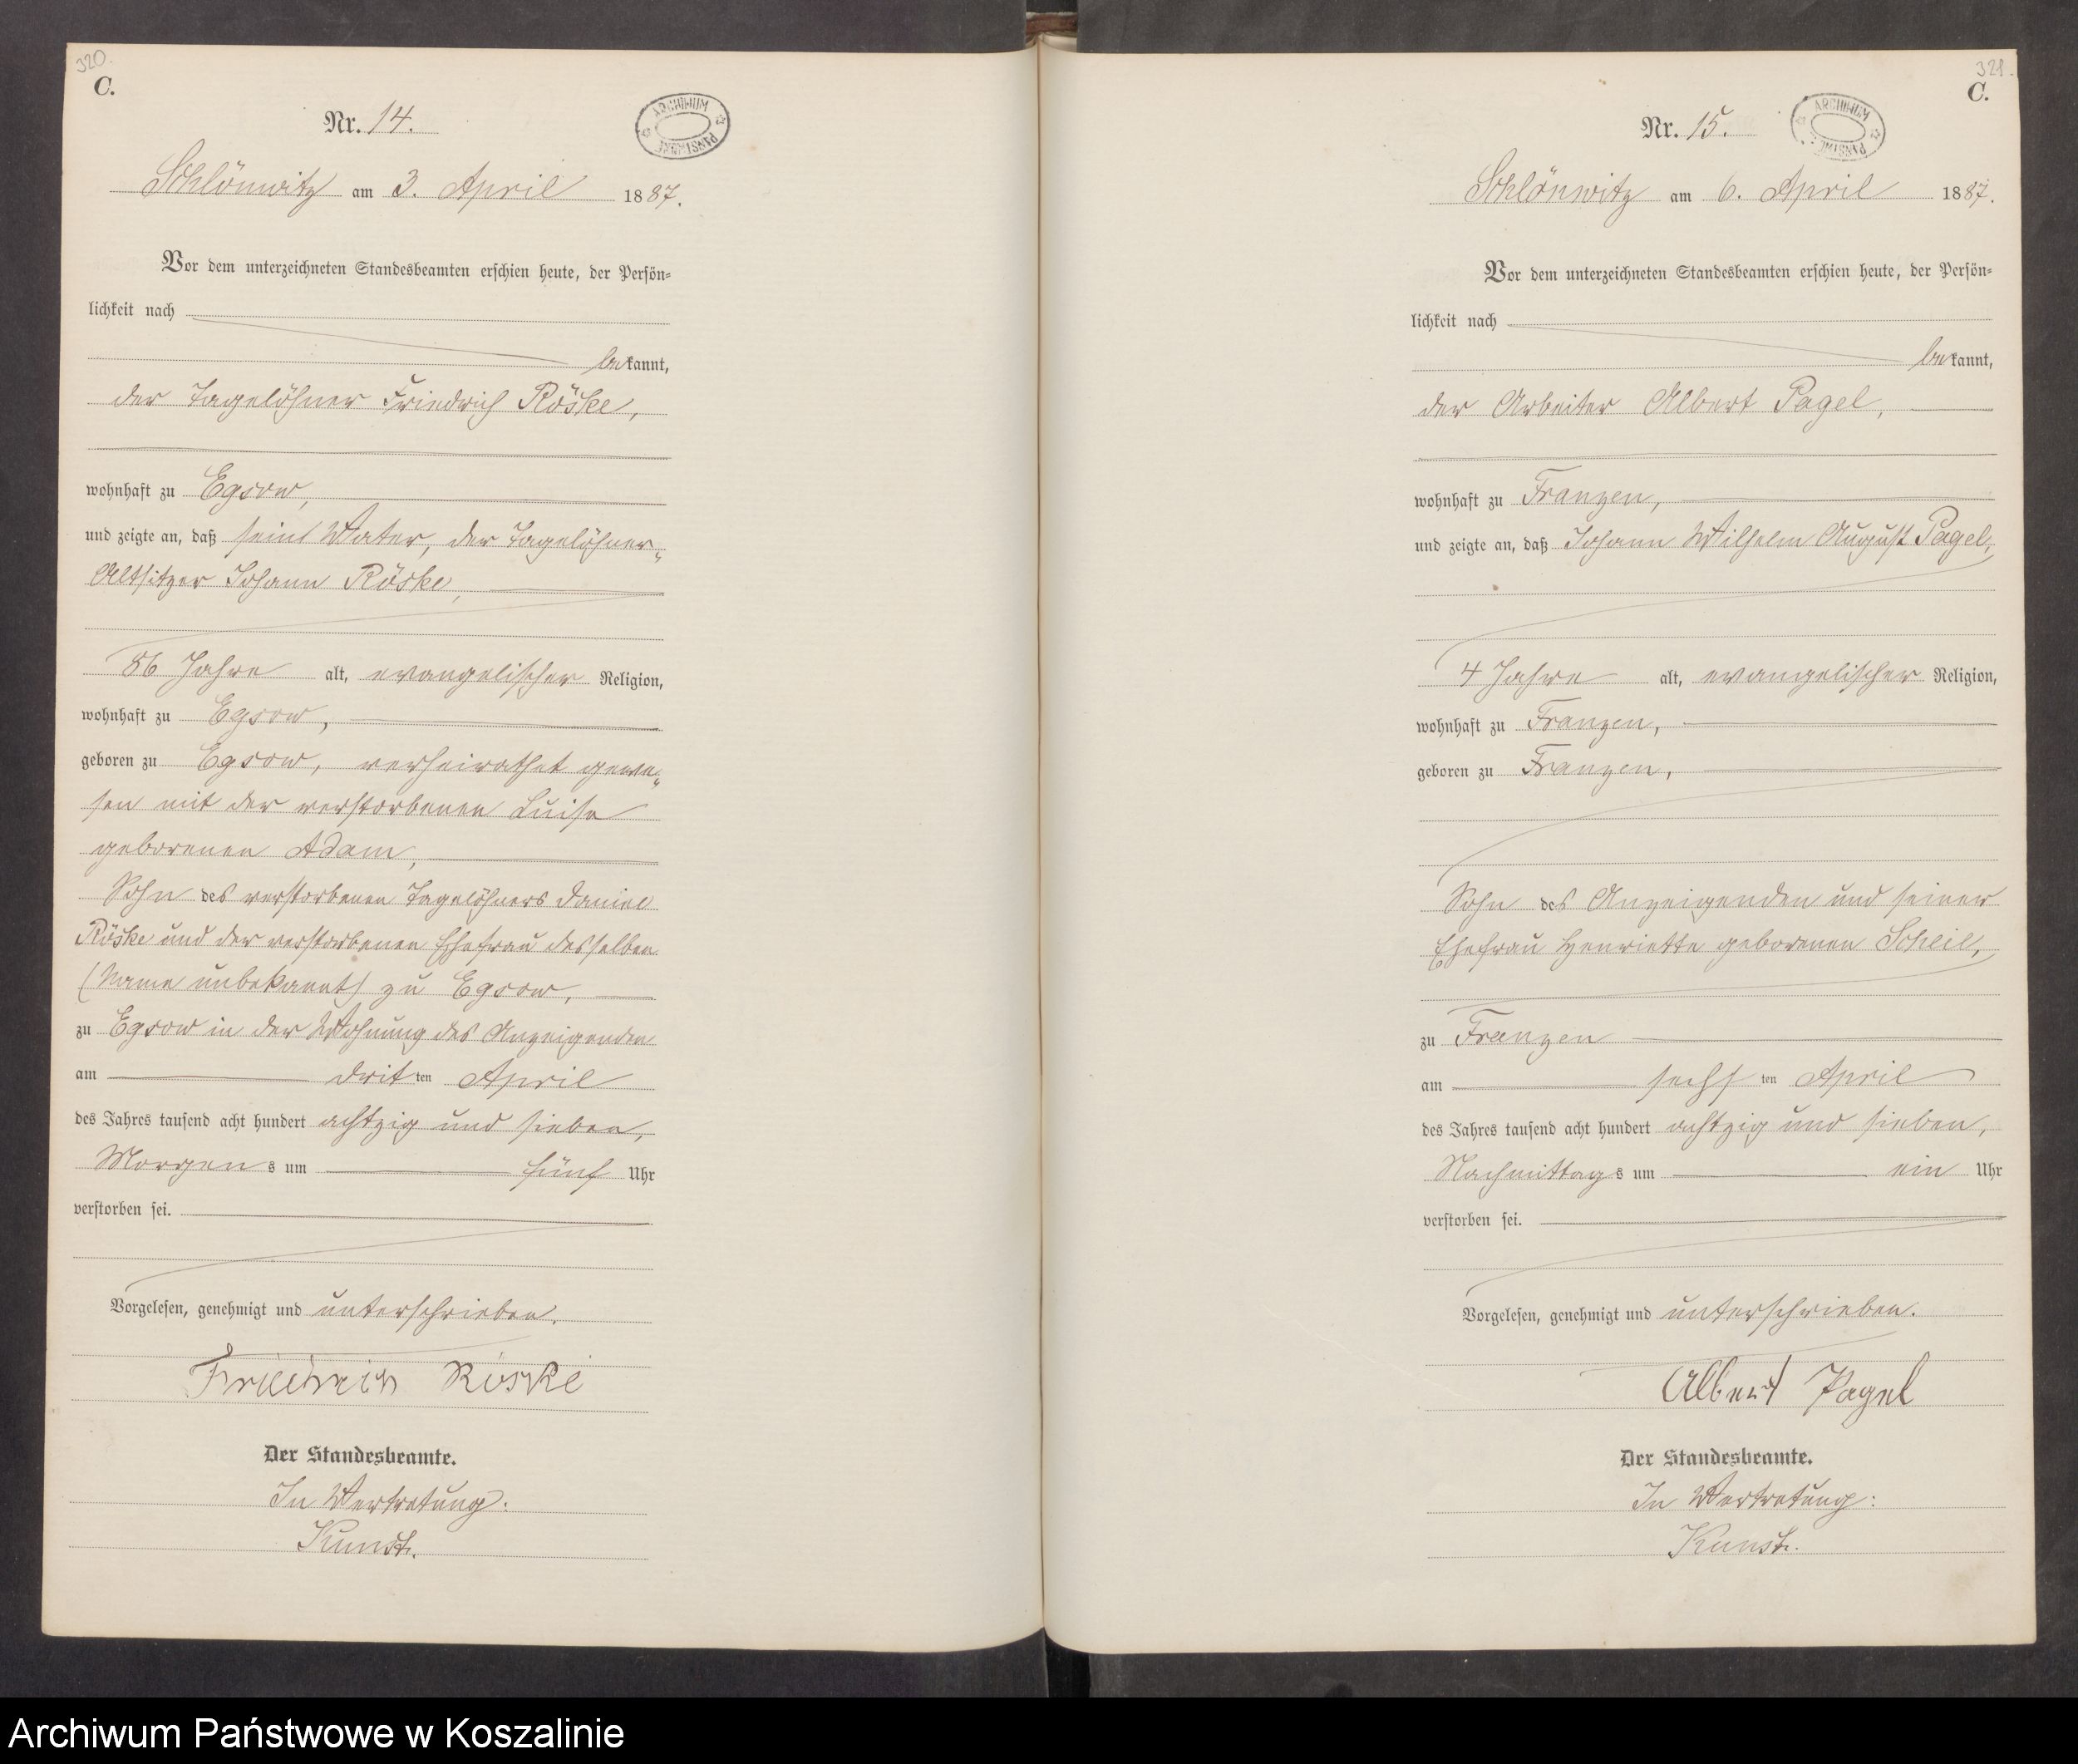 320.
C.
Nr. 14.
ARCHIWUM PAŃSTWOWE
Schlönwitz am 3. April 1887.
Vor dem unterzeichneten Standesbeamten erschien heute, der Persön=
lichkeit nach
bekannt,
der Tagelöhner Friedrich Röske,
wohnhaft zu Egsow,
und zeigte an, daß sein Vater, der Tagelöhner-
Altsitzer Johann Röske,
86 Jahre alt, evangelischer Religion,
wohnhaft zu Egsow,
geboren zu Egsow, verheirathet gewe-
sen mit der verstorbenen Luise
geborenen Adam,
Sohn des verstorbenen Tagelöhners Daniel
Röske und der verstorbenen Ehefrau desselben
(Name unbekannt) zu Egsow,
zu Egsow in der Wohnung des Anzeigenden
am dritten April
des Jahres tausend acht hundert achtzig und sieben,
Morgens um fünf Uhr
verstorben sei.
Vorgelesen, genehmigt und unterschrieben.
Friedrich Röske
Der Standesbeamte.
In Vertretung:
Kunst.
321.
C.
Nr. 15.
ARCHIWUM
Schlönwitz am 6. April 1887.
Vor dem unterzeichneten Standesbeamten erschien heute, der Persön=
lichkeit nach
bekannt,
der Arbeiter Albert Pagel,
wohnhaft zu Franzen,
und zeigte an, daß Johann Wilhelm August Pagel,
4 Jahre alt, evangelischer Religion,
wohnhaft zu Franzen,
geboren zu Franzen,
Sohn des Anzeigenden und seiner
Ehefrau Henriette geborenen Scheil,
zu Franzen
am sechsten April
des Jahres tausend acht hundert achtzig und sieben,
Nachmittags um ein Uhr
verstorben sei.
Vorgelesen, genehmigt und unterschrieben.
Albert Pagel
Der Standesbeamte.
In Vertretung:
Kunst.
Archiwum Państwowe w Koszalinie